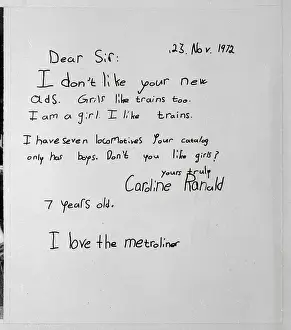 .23. Nov. 1972
Dear Sir:
I don't like your new
ads. Girls like trains too.
I am a girl. I like trains.
I have seven locomotives Your catalog
only has boys. Don't you like girls?
yours truly
Caroline Ranald
7 years old.
I love the metroliner